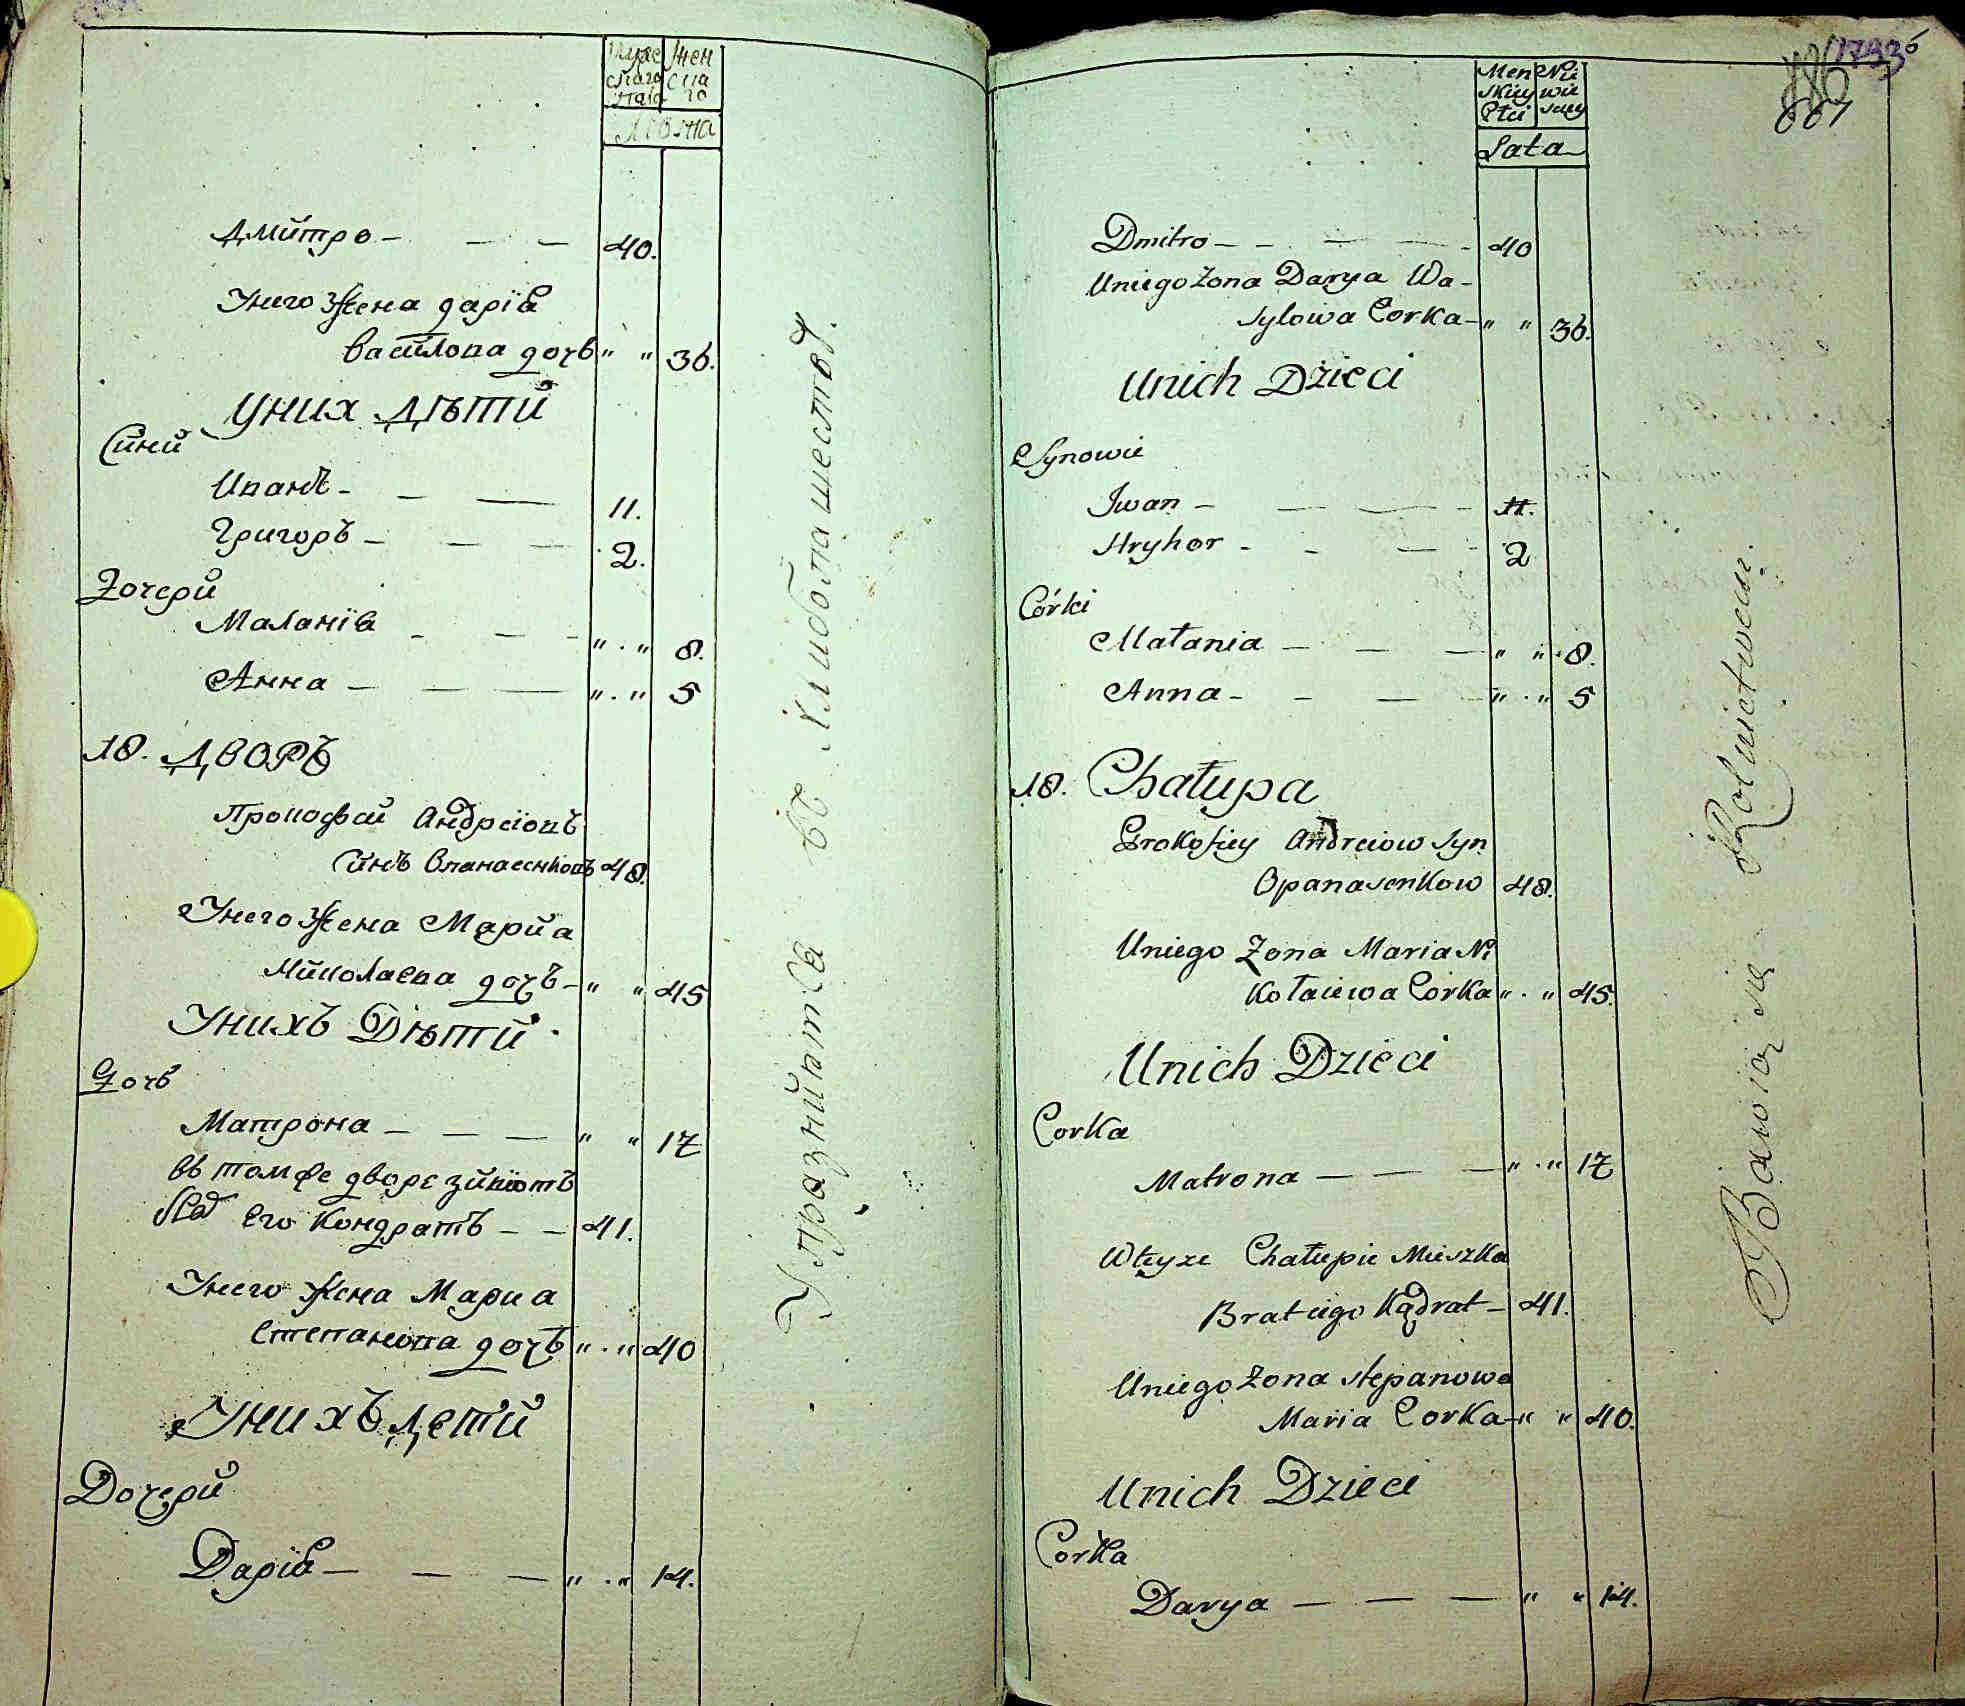 Мужеска пола Женска го
Лѣта
Дмитро — — — 40.
Унего Жена дарїа
василова дочь " " 36.
Уних дѣти
Сини
Иванъ — — — 11.
Григоръ — — — 2.
Дочери
Маланїа — — " " 8.
Анна — — — " " 5
18. Дворъ
Прокофей Андреiовъ
Синъ Опанасенковъ 48.
Унего Жена Мария
Миколаева дочъ — " " 45
Унихъ Дѣти
Дочь
Матрона — — — " " 17
въ томже дворе зивiотъ
Его Кондратъ — — 41.
Унего Жена Мариа
степанова дочъ " " 40
Унихъ дети
Дочери
Дарїа — — — " " 14.
Упразнйтса въ хлибопашествѣ.
1793
667
Men skiey Płci Nie wie sciey
Lata
Dmitro — — — 40
Uniego Zona Darya Wa-
sylowa Corka — " " 36.
Unich Dzieci
Synowie
Iwan — — — 11.
Hryhor — — — 2
Córki
Małania — — — " " 8.
Anna — — — " " 5
18. Chałupa
Prokofiey Andreiow Syn
Opanasenkow 48.
Uniego Zona Maria Ni
kołaiewa Corka " " 45.
Unich Dzieci
Corka
Matrona — — — " " 17
Wteyze Chałupie Mieszka
Brat iego Kądrat — 41.
Uniego Zona stepanowa
Maria Corka — " " 40.
Unich Dzieci
Corka
Darya — — — " " 14.
Bawią się Rolnictwem.